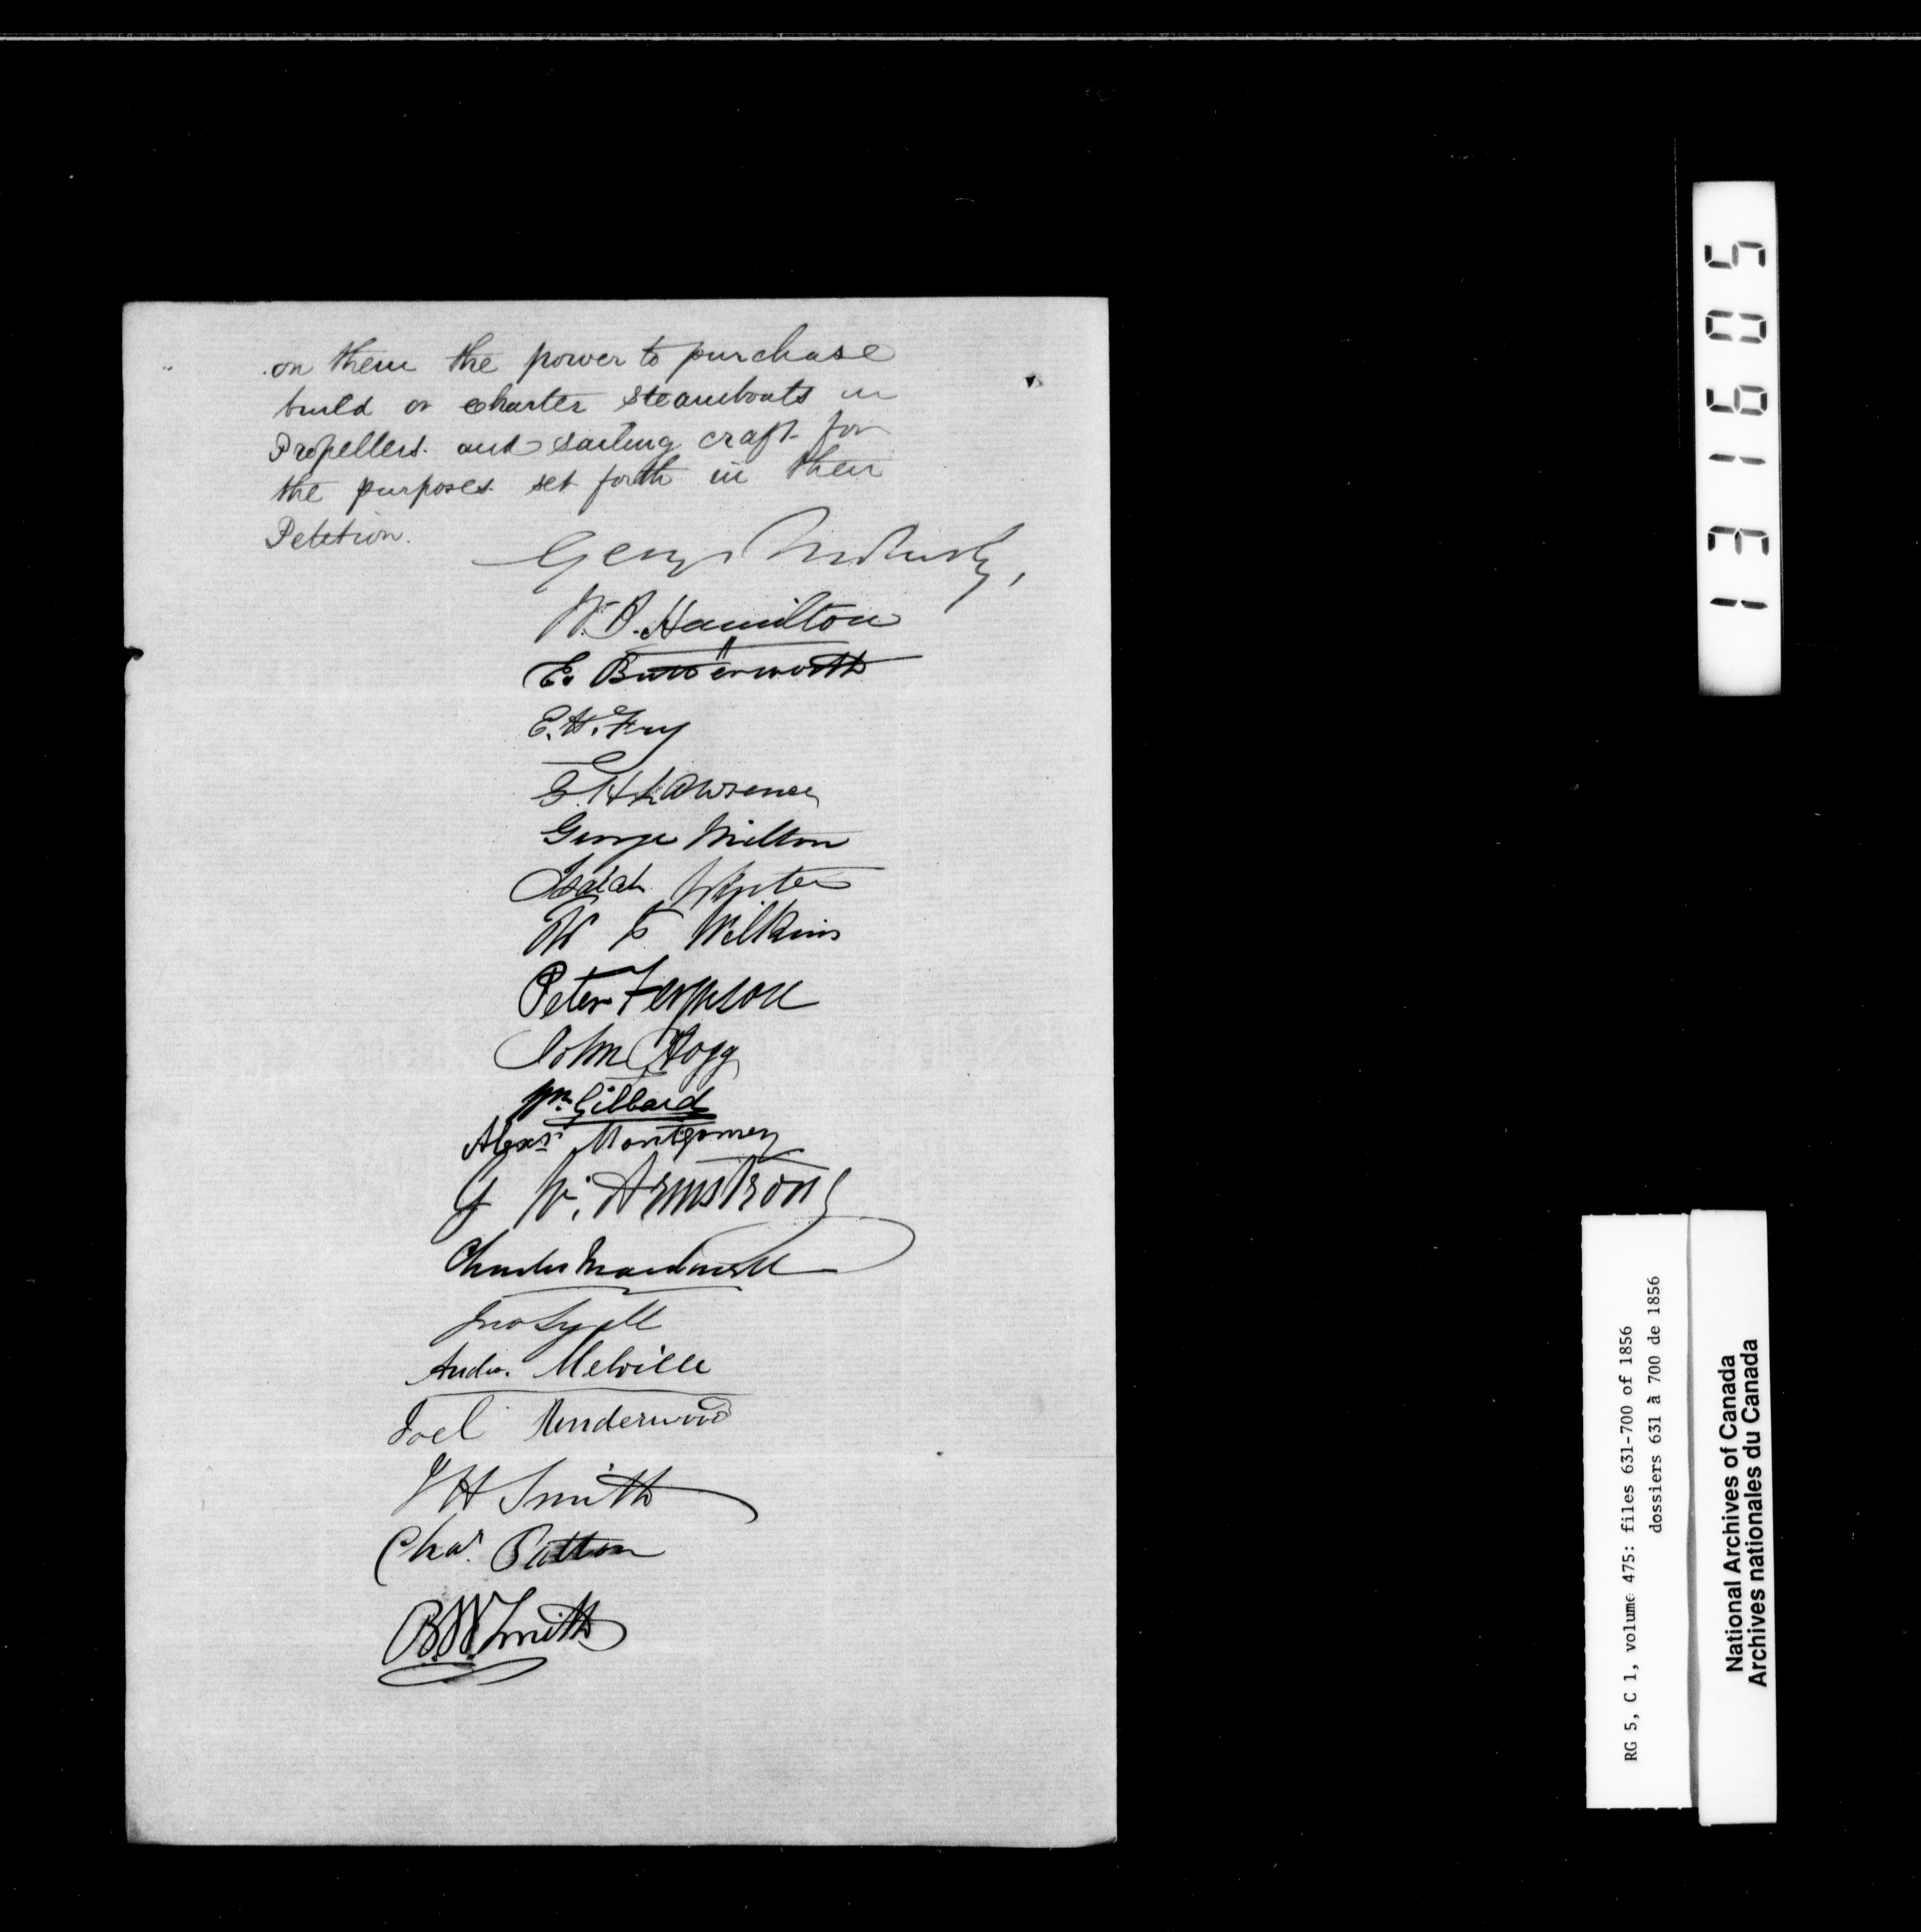 on them the power to purchase
build or charter steamboats or
Propellers and sailing craft for
the purposes set forth in their
Petition.
George
W. P. Hamilton
E. Butterworth
E. H. Fry
G. H. Lawrence
George Milton
Isaiah Winter
W S Wilkins
Peter Ferguson
John Hogg
Wm Gibbard
Alexr Montgomery
G W. Armstrong
Charles Macdonell
Jno Lyall
Andw. Melville
Joel Underwood
J H Smith
Chas. Patton
B. W. Smith
131605
RG 5, C 1, volume 475: files 631-700 of 1856
dossiers 631 à 700 de 1856
National Archives of Canada
Archives nationales du Canada